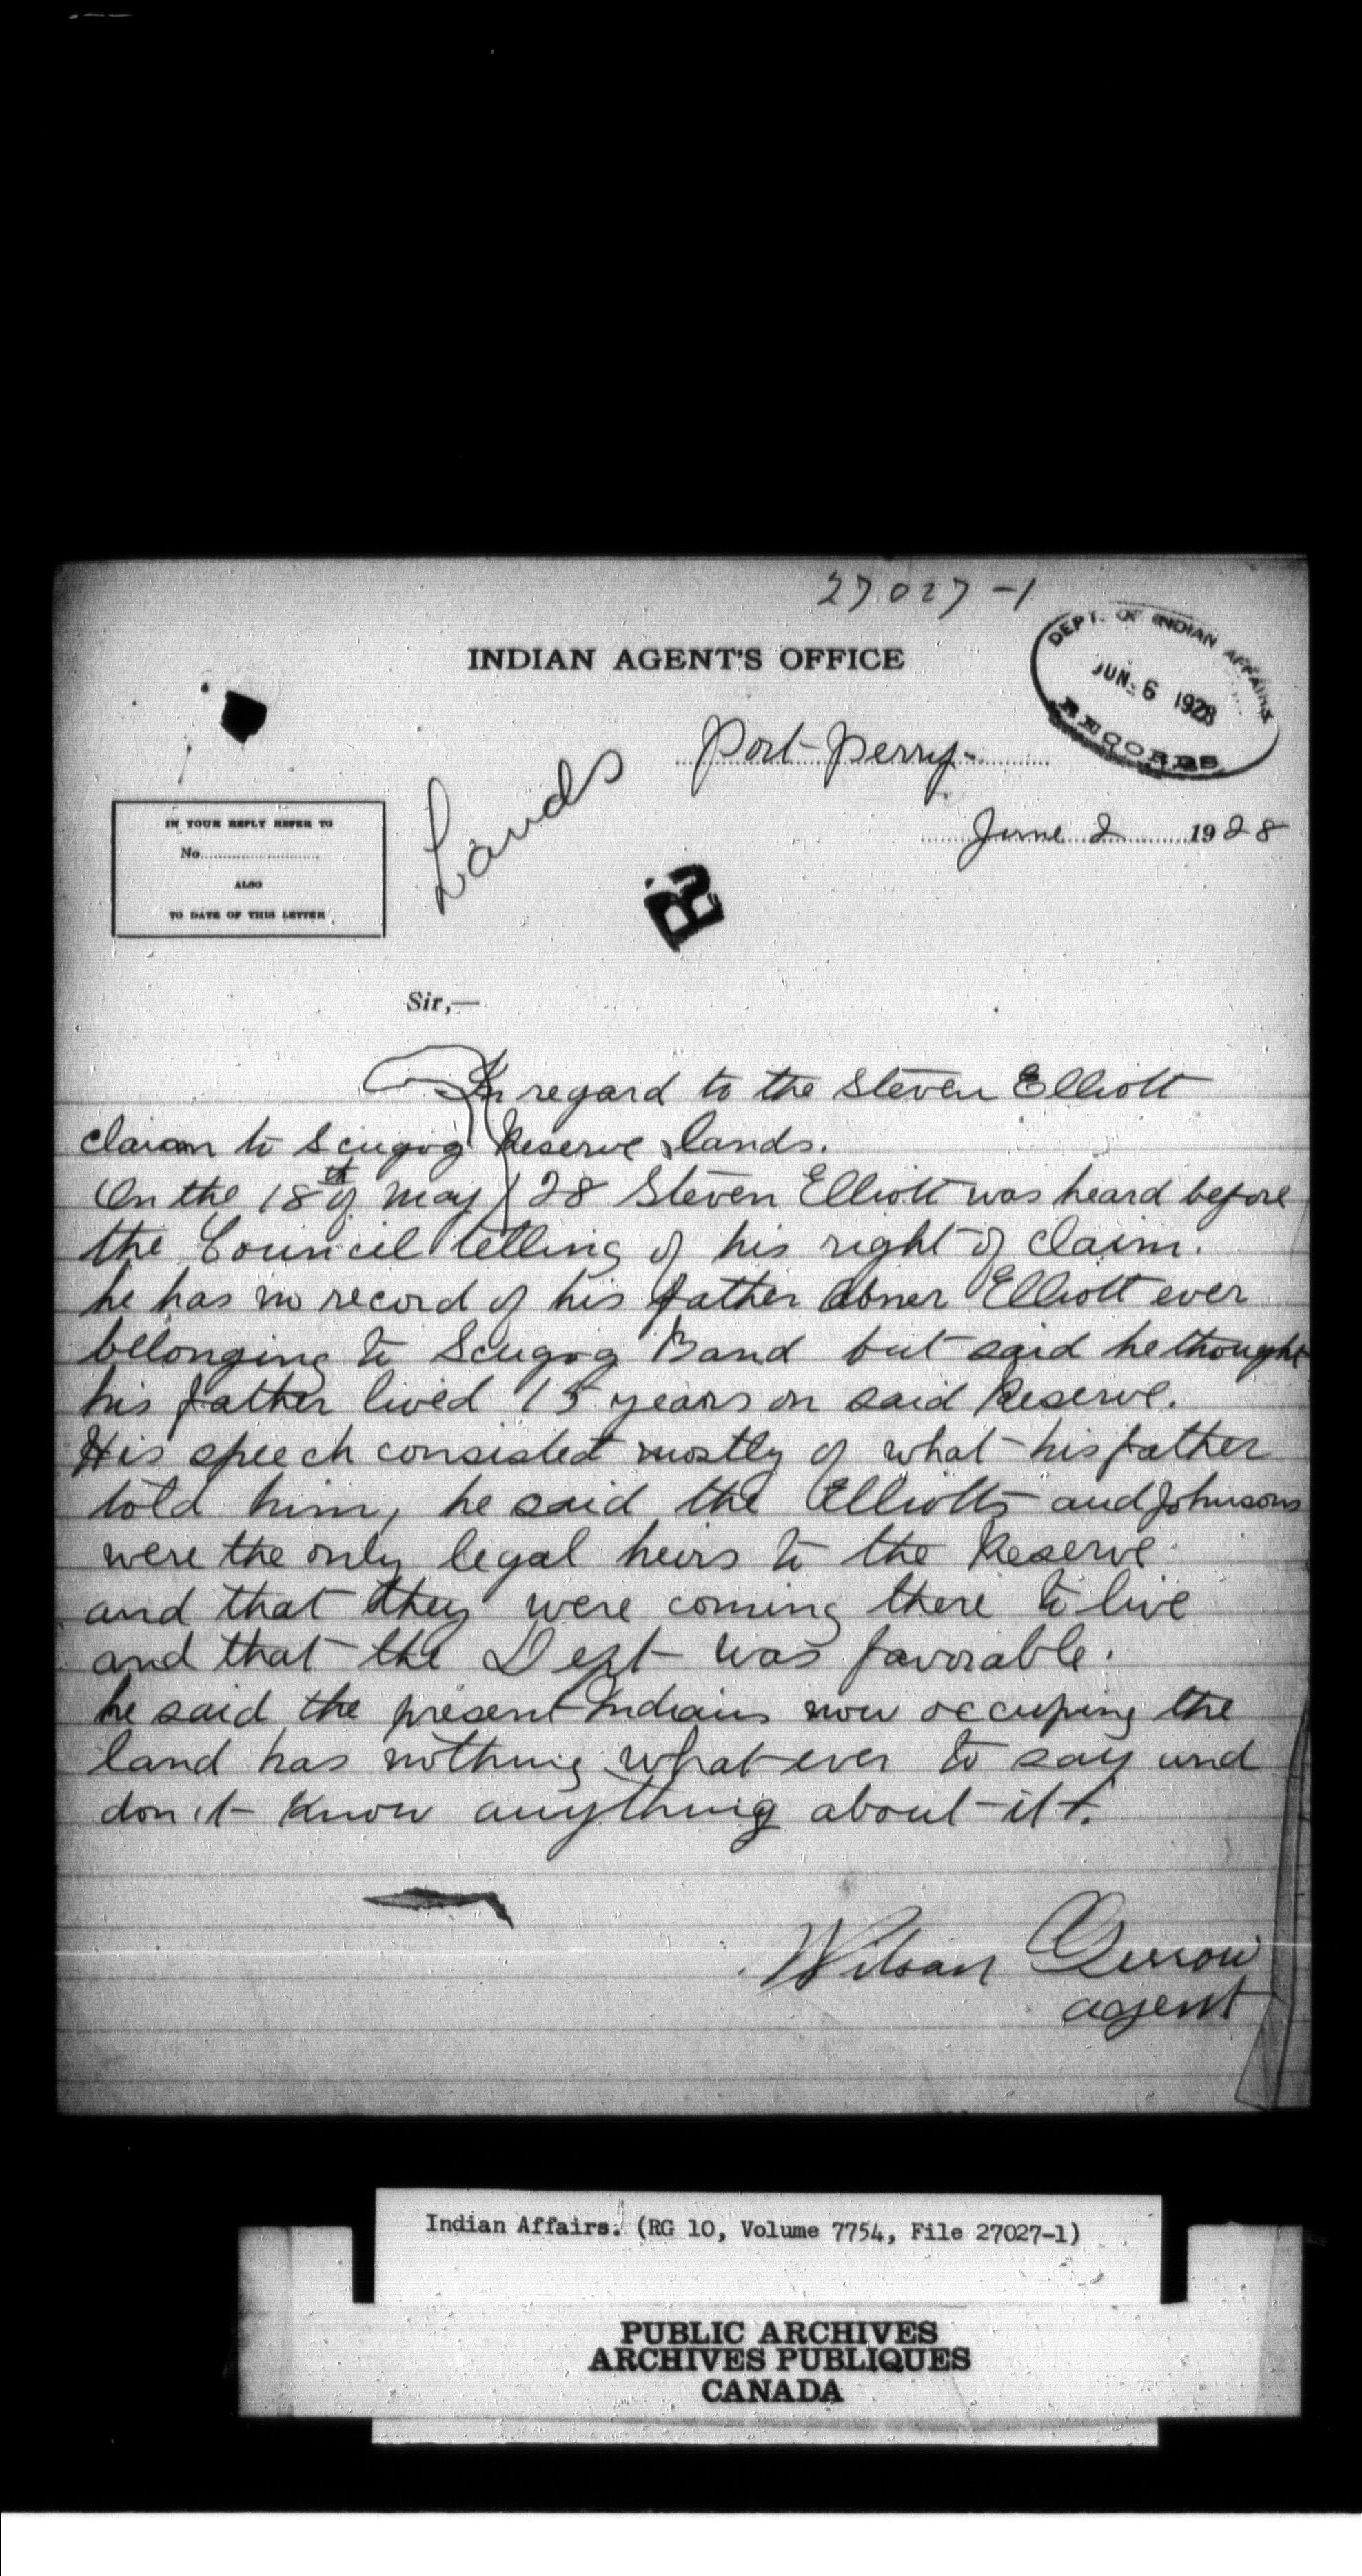 27027-1
INDIAN AGENT'S OFFICE
DEPT. OF INDIAN AFFAIRS
JUN 6 1928
RECORDS
Port Perry
Lands
June 2 1928
IN YOUR REPLY REFER TO
No.
ALSO
TO DATE OF THIS LETTER
Sir,—
In regard to the Steven Elliott
claim to Scugog Reserve lands.
On the 18th of May / 28 Steven Elliott was heard before
the Council telling of his right of claim.
he has no record of his father Abner Elliott ever
belonging to Scugog Band but said he thought
his father lived 15 years on said Reserve.
His speech consisted mostly of what his father
told him, he said the Elliotts and Johnsons
were the only legal heirs to the Reserve
and that they were coming there to live
and that the Dept was favorable.
he said the present Indians now occuping the
land has nothing what ever to say and
don't know anything about it.
Wilson Gerrow
agent
Indian Affairs. (RG 10, Volume 7754, File 27027-1)
PUBLIC ARCHIVES
ARCHIVES PUBLIQUES
CANADA